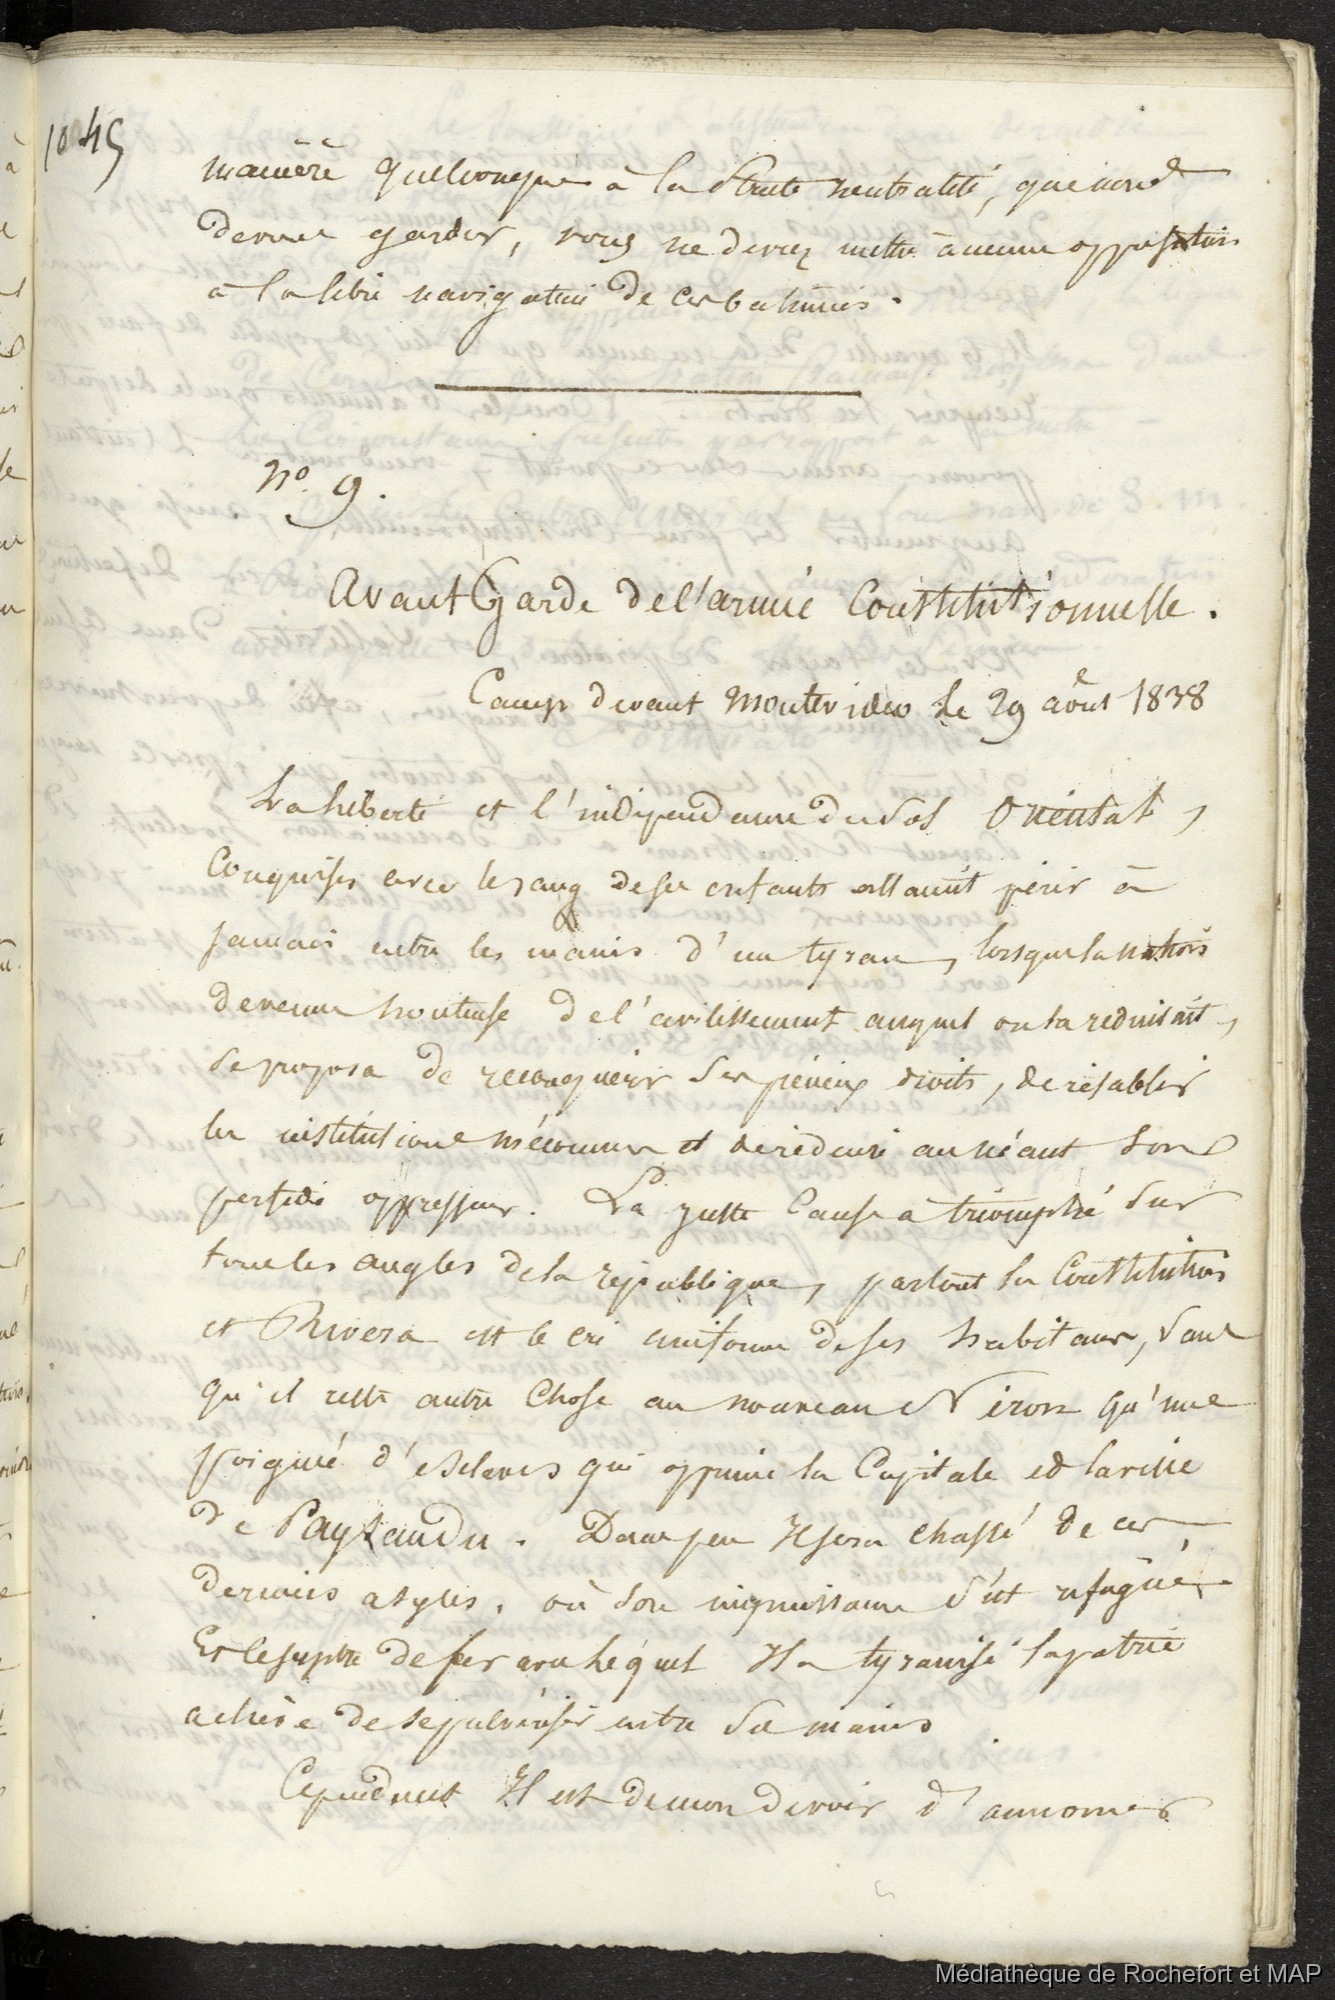 1045
manière quelconque à la Stricte neutralité, que nous
devons garder, vous ne devez mettre aucune opposition
à la libre navigation de ces batimens.
N.o 9.
Avant Garde de l'armée Constitutionnelle.
Camp devant Montevideo le 29 août 1838
La liberté et l'indépendance du Sol Oriental,
Conquises avec le sang de ses enfants allaint périr à
jamais entre les mains d'un tyran, lorsque la nation
devenue honteuse de l'avilissement auquel on la reduisait,
se proposa de reconquérir ses précieux droits, de rétablir
les institutions méconnues et de réduire au néant son
perfide oppresseur. La juste Cause a triomphé sur
tous les angles de la république, partout la Constitution
et Rivera est le cri uniforme de ses habitans, sans
qu'il reste autre Chose au nouveau Néron qu'une
poignée d'esclaves qui opprime la Capitale et la ville
de Paysandu. Dans peu Il sera chassé de ces
derniers asyles, où son impuissance s'est refugiée,
Et le sceptre de fer avec lequel Il a tyranisé la patrie
achève de se pulvériser entre ses mains
Cependant Il est de mon devoir d'annoncer
Médiathèque de Rochefort et MAP